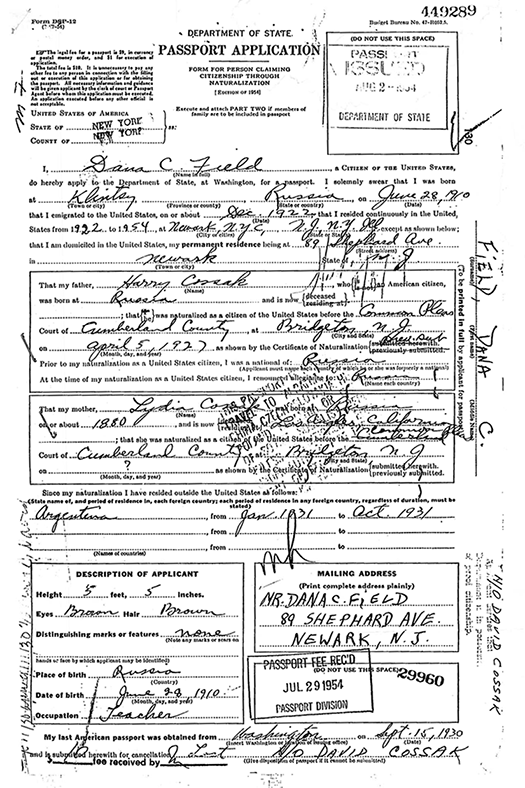 449289
Form DSP-12
Budget Bureau No.
DEPARTMENT OF STATE
PASSPORT APPLICATION
FORM FOR PERSON CLAIMING
CITIZENSHIP THROUGH
NATURALIZATION
[EDITION OF 1954]
Execute and attach PART TWO if members of
family are to be included in passport
The legal fee for a passport is $9, in currency
or postal money order, and $1 for execution of
application.
The total fee is $10. It is unnecessary to pay any
other fee to any person in connection with the filling
out or execution of this application or for obtaining
passport. All necessary information and guidance
will be given applicants by the clerk of court or Passport
Agent before whom this application must be executed.
An application executed before any other official is
not acceptable.
(DO NOT USE THIS SPACE)
PASSPORT
ISSUED
AUG 2 - 1954
DEPARTMENT OF STATE
UNITED STATES OF AMERICA
STATE OF NEW YORK ss:
COUNTY OF NEW YORK
I, Dana C. Field, a CITIZEN OF THE UNITED STATES,
(Name in full)
do hereby apply to the Department of State, at Washington, for a passport. I solemnly swear that I was born
at Klintsy Russia on June 28, 1910
(Town or city) (Province or county) (State or country) (Date)
that I emigrated to the United States, on or about Dec. 1922, that I resided continuously in the United
States from 1922 to 1954, at Newark, N.Y.C, N.J. N.Y. except as shown below;
that I am domiciled in the United States, my permanent residence being at 89 Shephard Ave.
(Street address)
in Newark State of N.J
(Town or city)
That my father, Harry Cossak who is an American citizen,
(Name)
was born at Russia and is now (deceased (residing at)
; that he was naturalized as a citizen of the United States before the Common Pleas
Court of Cumberland County, at Bridgeton N.J.
(City and State)
on April 5, 1927 as shown by the Certificate of Naturalization (submitted herewith. (previously submitted.
(Month, day, and year)
Prior to my naturalization as a United States citizen, I was a national of: Russia
(Applicant must name each country of which he or she was formerly a national)
At the time of my naturalization as a United States citizen, I renounced allegiance to: Russia
(Name each country)
That my mother, Lydia
(Name)
on or about 1880, and is now Los Angeles, California
; that she was naturalized as a citizen of the United States before the
Court of Cumberland County at Bridgeton N.J
(City and State)
on ? as shown by the Certificate of Naturalization (submitted herewith. (previously submitted.
(Month, day, and year)
Since my naturalization I have resided outside the United States as follows:
(State name of, and period of residence in, each foreign country; each period of residence in any foreign country, regardless of duration, must be
stated)
Argentina, from Jan. 1931 to Oct. 1931
, from to
, from to
(Names of countries)
DESCRIPTION OF APPLICANT
Height 5 feet, 5 inches.
Eyes Brown Hair Brown
Distinguishing marks or features none
(Note any marks or scars on
hands or face by which applicant may be identified)
Place of birth Russia
(Country)
Date of birth June 28, 1910
(Month, day, and year)
Occupation Teacher
MAILING ADDRESS
(Print complete address plainly)
MR. DANA C. FIELD
89 SHEPHARD AVE.
NEWARK, N.J.
PASSPORT FEE REC'D
(DO NOT USE THIS SPACE)
29960
JUL 29 1954
PASSPORT DIVISION
My last American passport was obtained from Washington on Sept. 15, 1930
(Insert Washington or location of issuing office) (Date)
and is submitted herewith for cancellation Lost H/O DAVID COSSAK
(Give disposition of passport if it cannot be submitted)
fee received by
FIELD DANA C.
(Surname) (First name) (Middle name)
(To be printed in full by applicant for passport)
H/O DAVID COSSAK